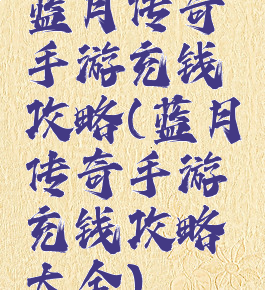 蓝月传奇
手游充钱
攻略(蓝月
传奇手游
充钱攻略
大全)